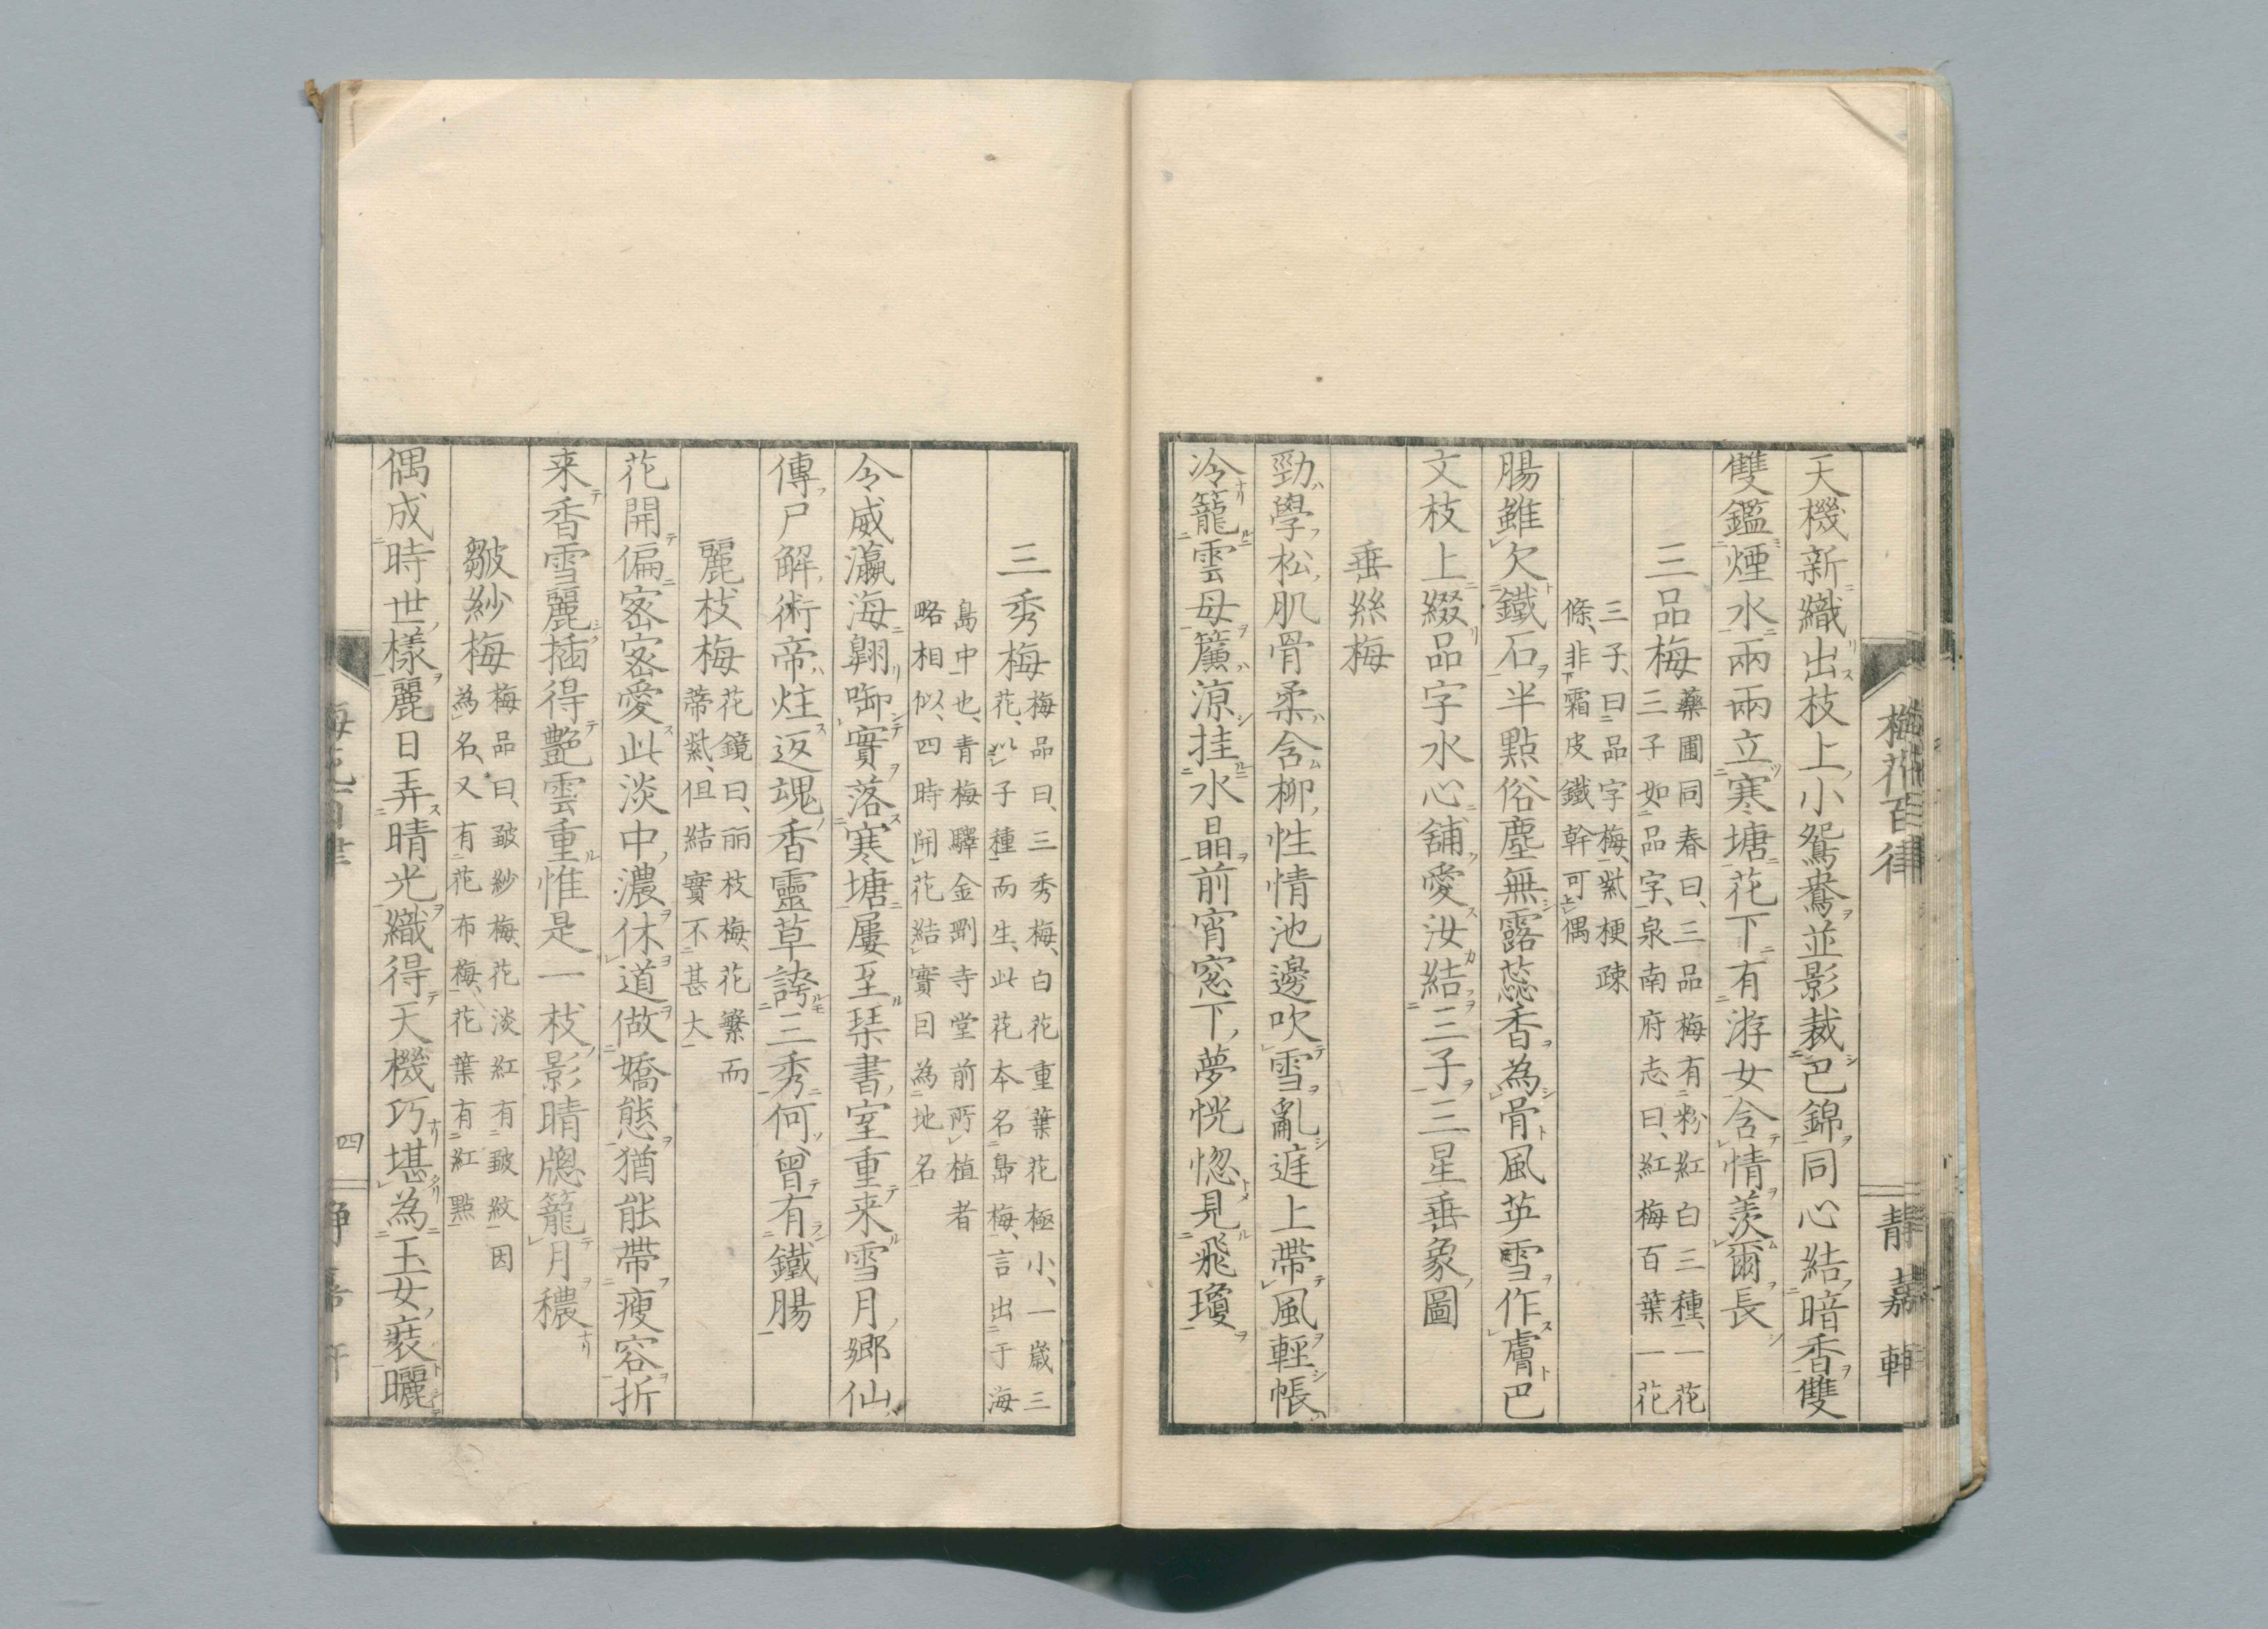 梅花百律
靜嘉軒
天機新織出枝上小鴛鴦並影裁巴錦同心結暗香雙
雙鑑煙水兩兩立寒塘花下有游女含情羨爾長
三品梅
藥圃同春曰、三品梅有粉紅白三種、一花
三子如品字、泉南府志曰、紅梅百葉一花
三子、曰品字梅、紫梗疎
條、非霜皮鐵幹可偶
腸雖欠鐵石半點俗塵無露蕊香為骨風英雪作膚巴
文枝上綴品字水心舖愛汝結三子三星垂象圖
垂絲梅
勁學松肌骨柔含柳性情池邊吹雪亂庭上帶風輕帳
冷籠雲母簾涼挂水晶前宵窓下夢恍惚見飛瓊
三秀梅
梅品曰、三秀梅、白花重葉花極小、一歲三
花、以子種而生、此花本名島梅、言出于海
島中也、青梅驛金剛寺堂前所植者
略相似、四時開花結實因為地名
令威瀛海翺啣實落寒塘屢至琹書室重来雪月鄉仙
傳尸解術帝炷返魂香靈草誇三秀何曾有鐵腸
麗枝梅
花鏡曰、丽枝梅、花繁而
蒂紫、但結實不甚大
花開偏密密愛此淡中濃休道做嬌態猶能帶瘦容折
来香雪麗插得艷雲重惟是一枝影晴牕籠月穠
皺紗梅
梅品曰、皺紗梅、花淡紅有皺紋因
為名、又有花布梅、花葉有紅點
偶成時世樣麗日弄晴光織得天機巧堪為玉女裝曬
四